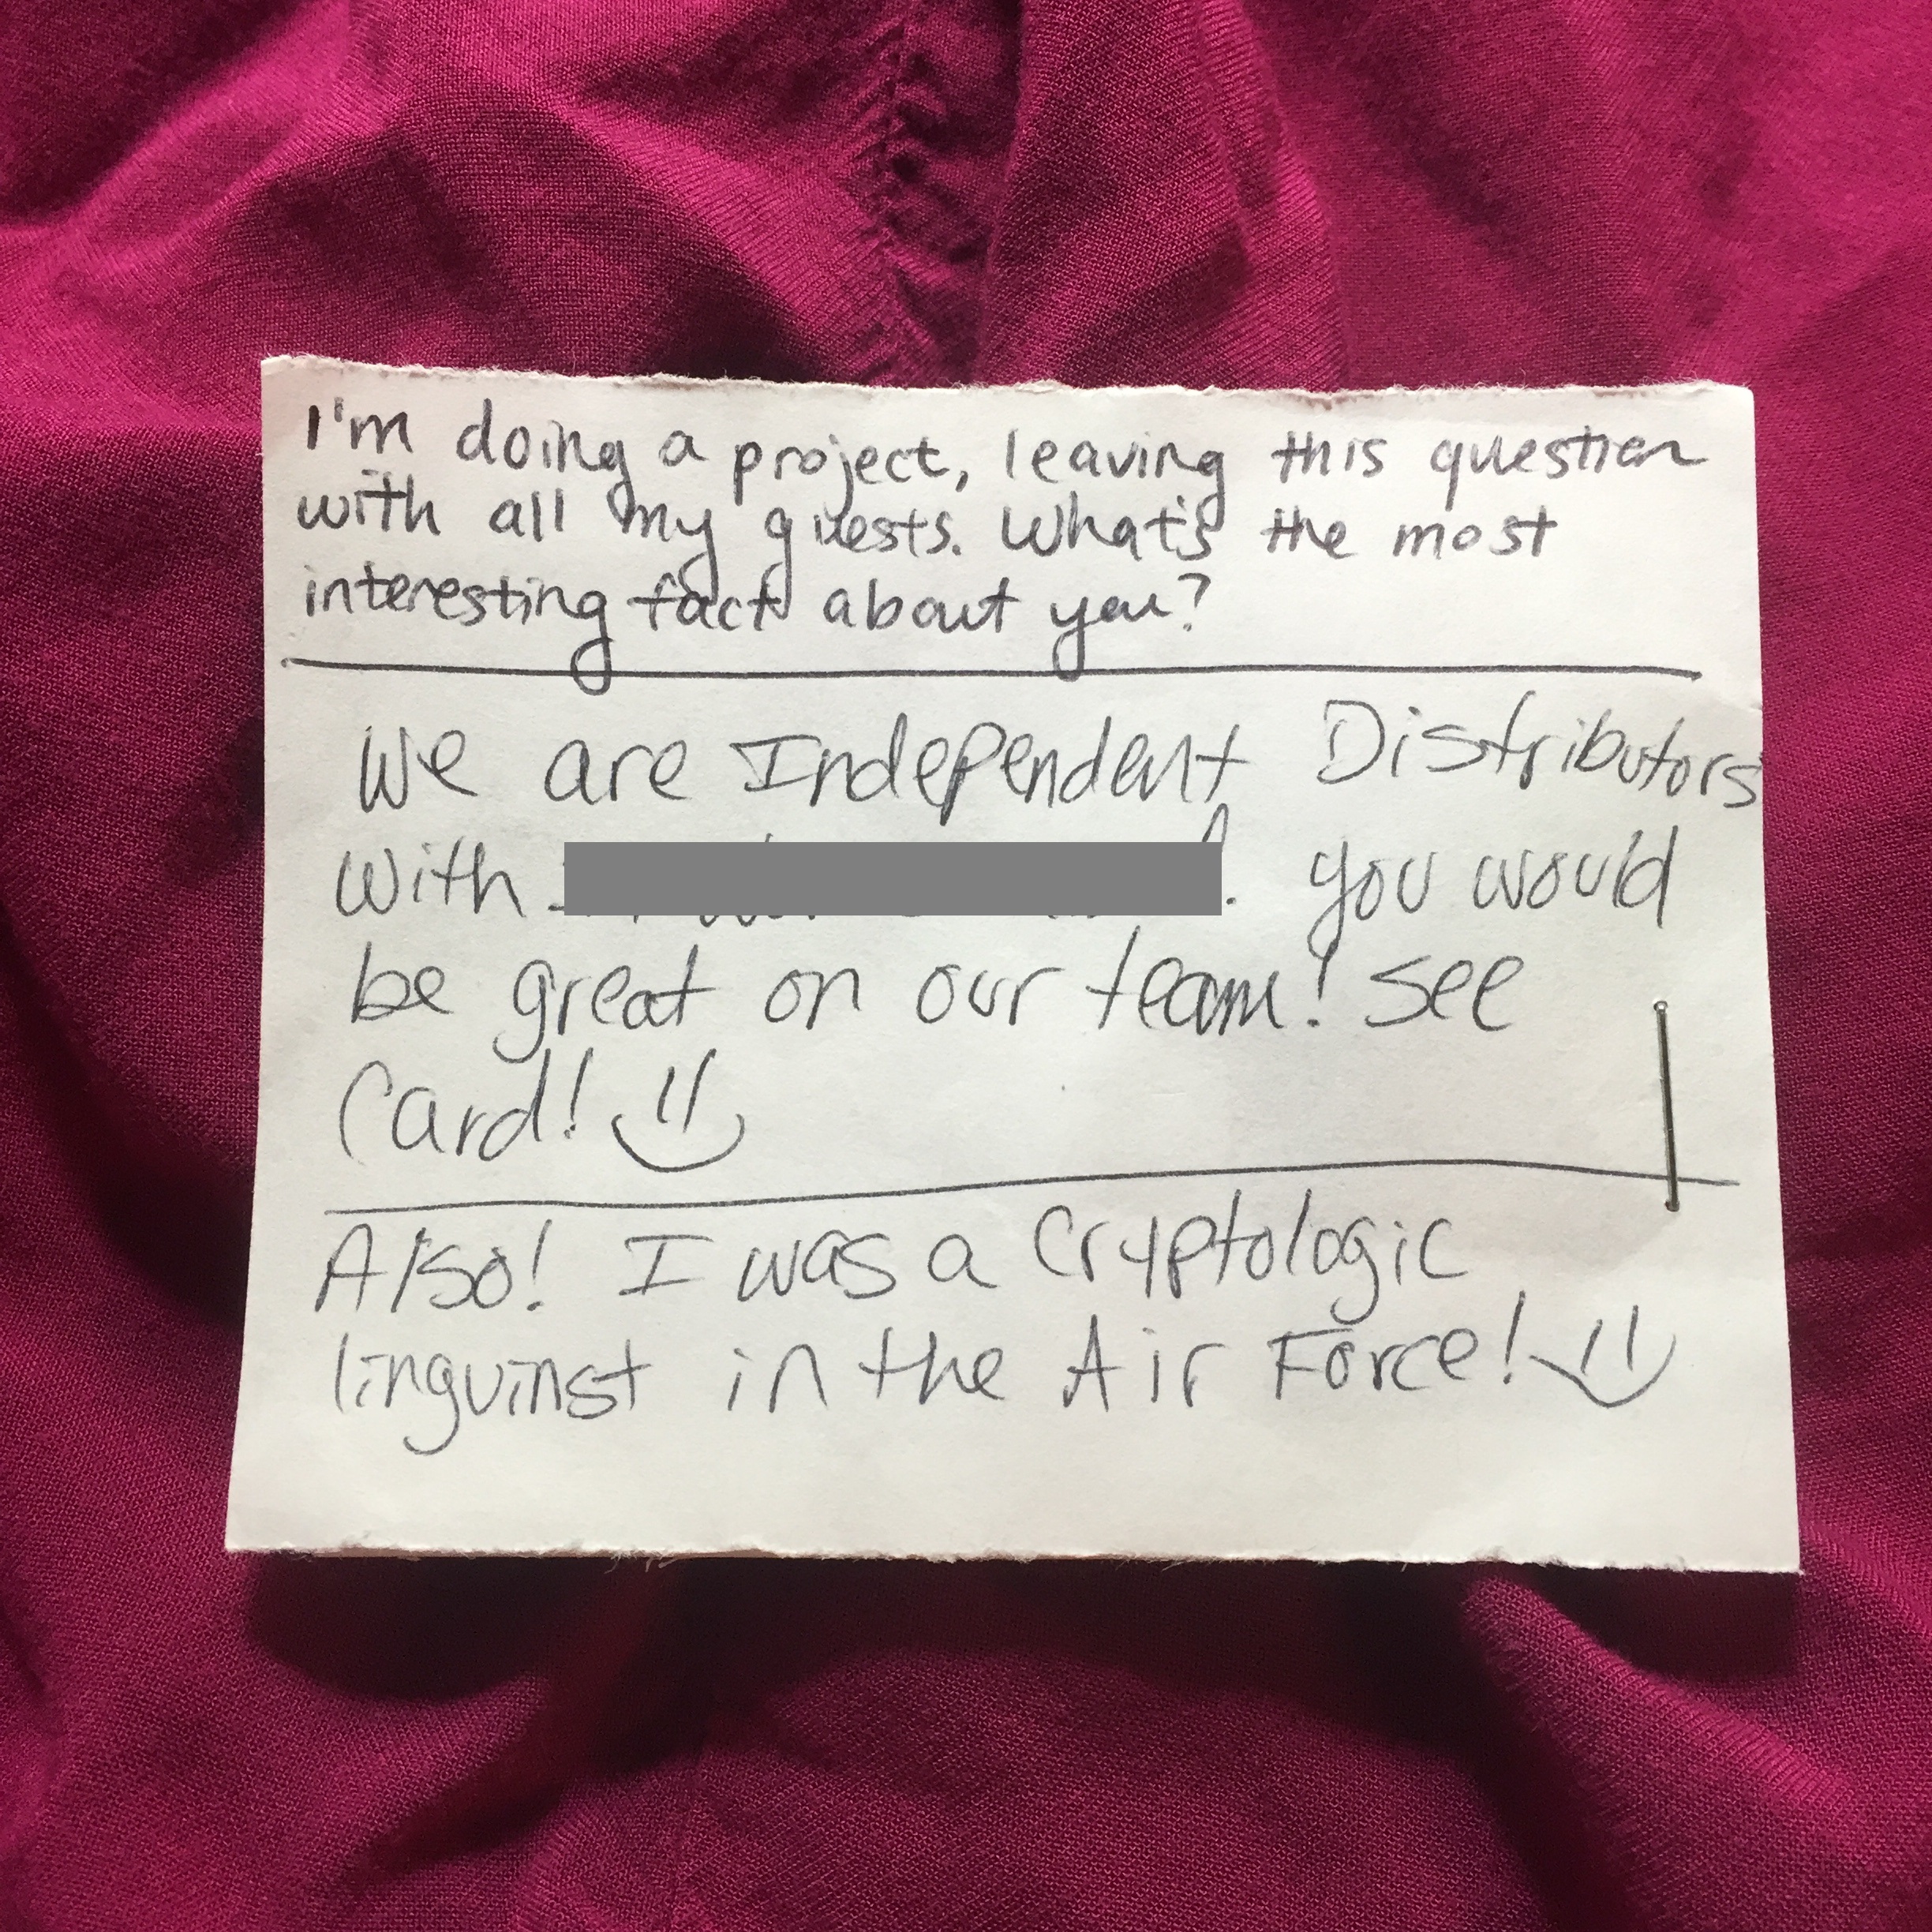 I'm doing a project, leaving this question
with all my guests. What's the most
interesting fact about you?
We are Independent Distributors
with . you would
be great on our team! See
Card!
Also! I was a Cryptologic
linguinst in the Air Force!